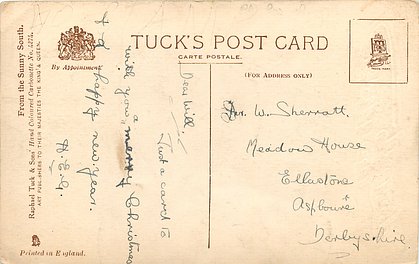 TUCK'S POST CARD
CARTE POSTALE.
(FOR ADDRESS ONLY)
By Appointment
From the Sunny South.
Raphael Tuck & Sons' Hand Coloured Carbonette No. 2272.
ART PUBLISHERS TO THEIR MAJESTIES THE KING & QUEEN.
Printed in England.
Dear Will,
Just a card to
wish you a
merry Christmas
& a happy new year.
W. Sherratt.
Meadow House
Ellastone
Ashbourne
Derbyshire.